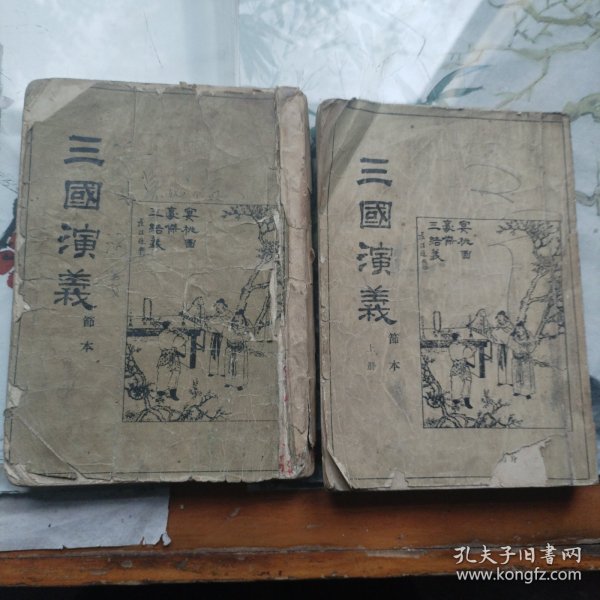 三國演義
節本
宴桃園
豪傑
三結義
三國演義
節本
上册
宴桃園
豪傑
三結義
孔夫子旧書网
www.kongfz.com